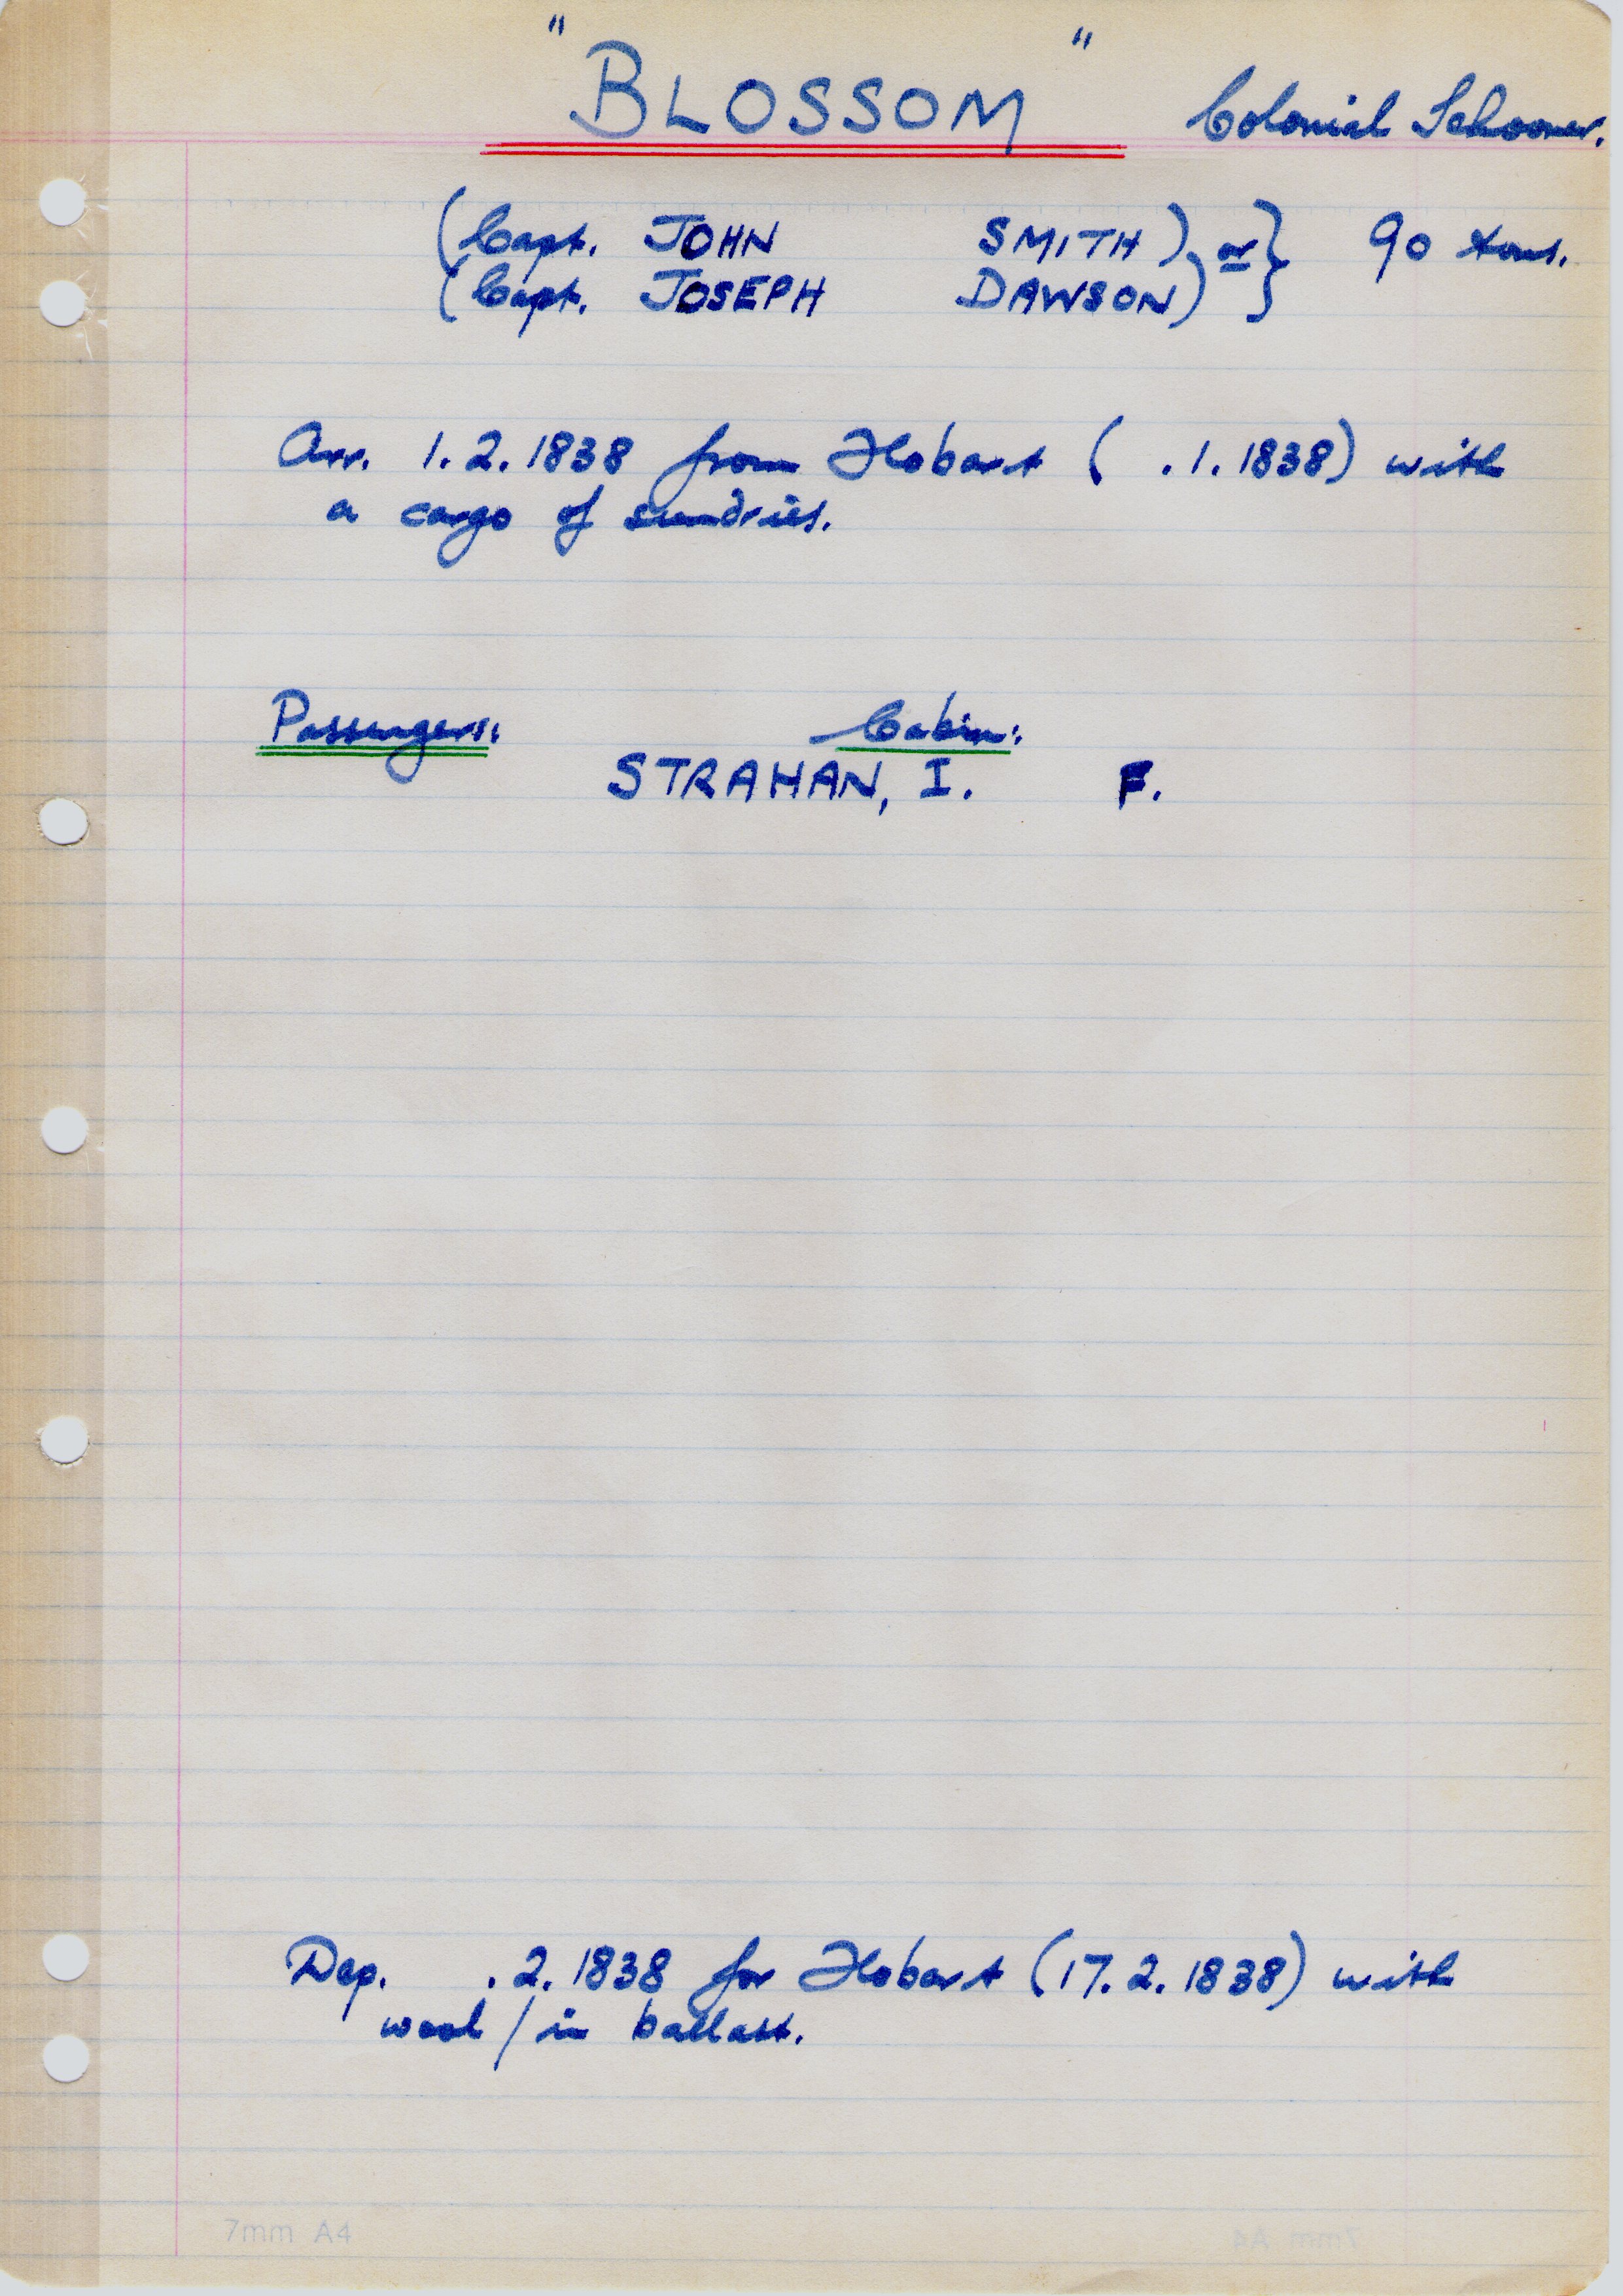 "BLOSSOM" Colonial Schooner.
(Capt. JOHN SMITH) or} 90 tons.
(Capt. JOSEPH DAWSON)}
Arr. 1.2.1838 from Hobart ( .1.1838) with
a cargo of sundries.
Passengers: Cabin:
STRAHAN, I. F.
Dep. .2.1838 for Hobart (17.2.1838) with
wool/in ballast.
7mm A4